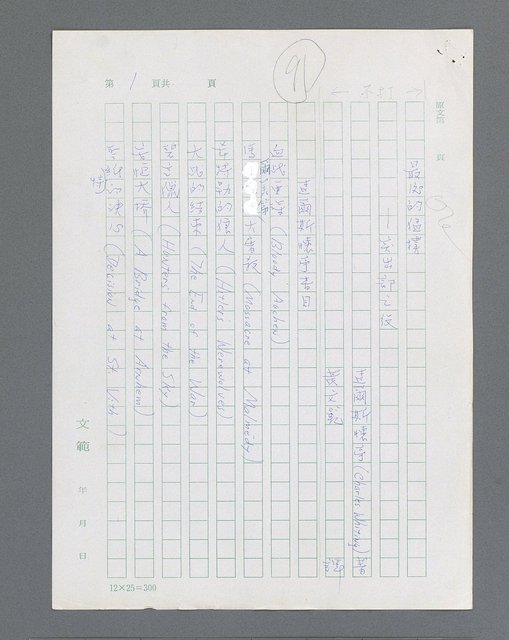 91
← 不打 →
第 1 頁共 頁
原文第 頁
最後的猛撲
——突出部之役
查爾斯懷亭(Charles Whiting)著
黃文範 譯
查爾斯懷亭書目
(Bloody Aachen)
大屠殺 (Massacre at Malmédy)
希特勒的狼人 (Hitler's Werewolves)
大戰的結束 (The End of the War)
獵人 (Hunters from the Sky)
安恒大橋 (A Bridge at Arnhem)
聖維特的決心 (Decision at St. Vith)
文範 年 月 日
12×25=300